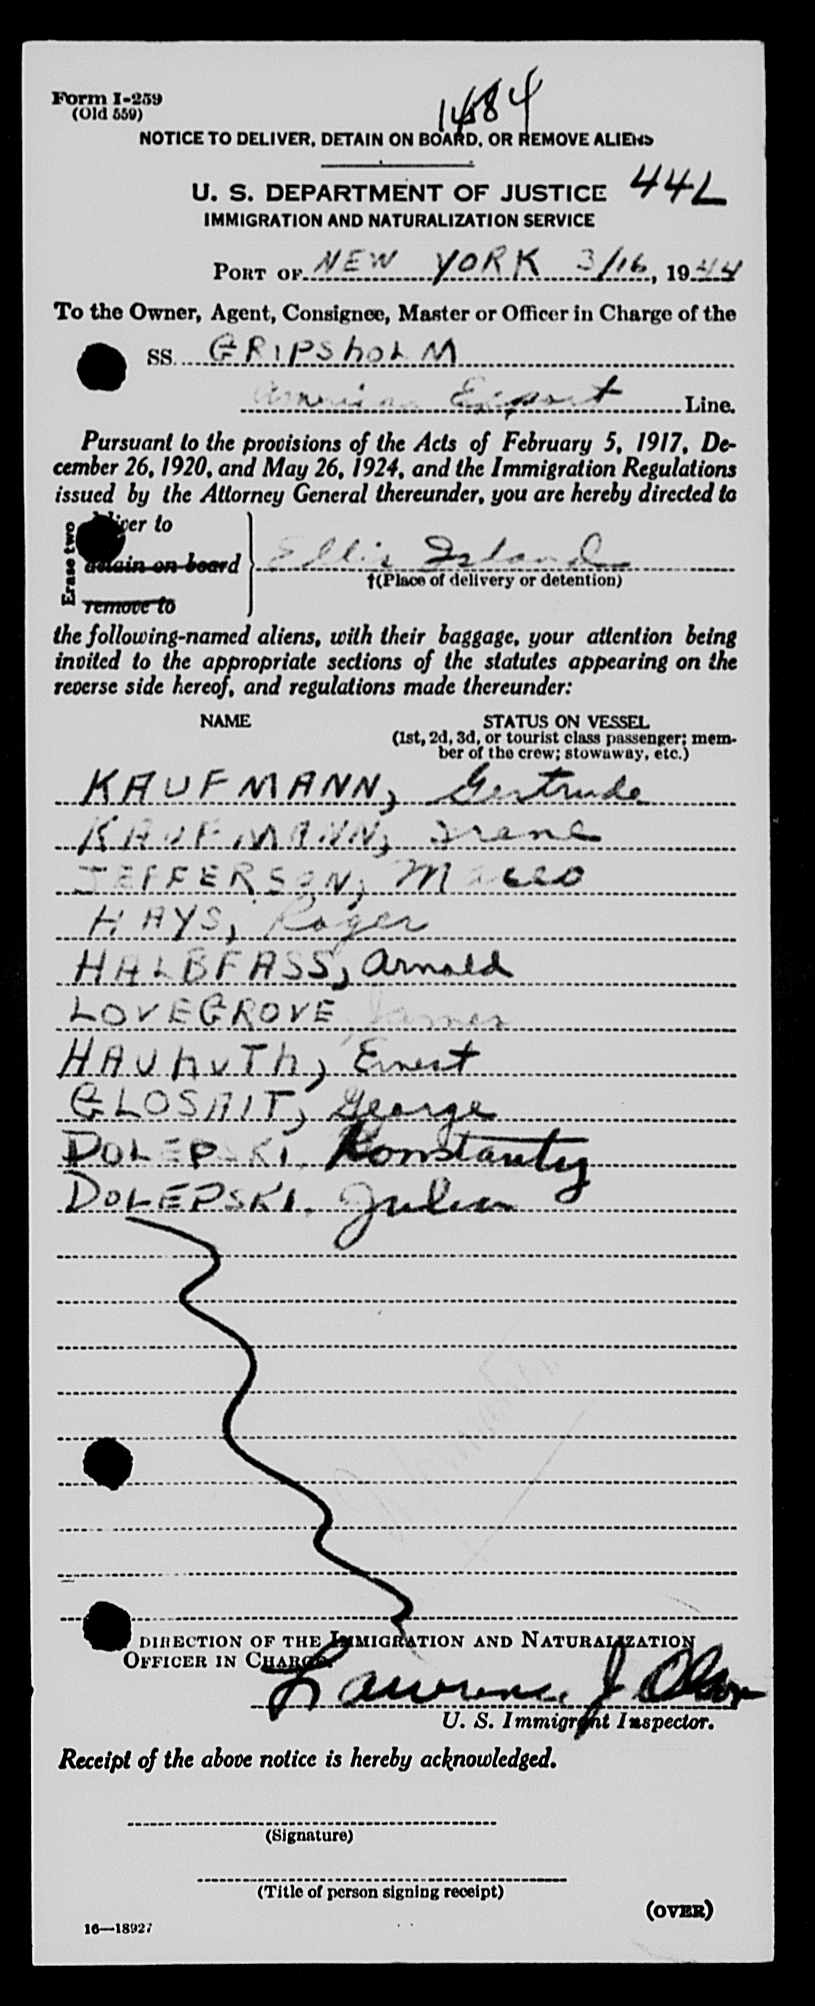 Form I-259
(Old 559)
1484
NOTICE TO DELIVER, DETAIN ON BOARD, OR REMOVE ALIENS
44L
U. S. DEPARTMENT OF JUSTICE
IMMIGRATION AND NATURALIZATION SERVICE
PORT OF NEW YORK 3/16, 1944
To the Owner, Agent, Consignee, Master or Officer in Charge of the
SS. GRIPSHOLM
American Export Line.
Pursuant to the provisions of the Acts of February 5, 1917, De-
cember 26, 1920, and May 26, 1924, and the Immigration Regulations
issued by the Attorney General thereunder, you are hereby directed to
Erase two
deliver to
detain on board
remove to
Ellis Island
†(Place of delivery or detention)
the following-named aliens, with their baggage, your attention being
invited to the appropriate sections of the statutes appearing on the
reverse side hereof, and regulations made thereunder:
NAME STATUS ON VESSEL
(1st, 2d, 3d, or tourist class passenger; mem-
ber of the crew; stowaway, etc.)
KAUFMANN, Gertrude
KAUFMANN, Irene
JEFFERSON, Maceo
HAYS, Roger
HALBFASS, Arnold
LOVEGROVE, James
HAUHUTH, Ernest
GLOSAIT, George
DOLEPSKI, Konstanty
DOLEPSKI, Julian
DIRECTION OF THE IMMIGRATION AND NATURALIZATION
OFFICER IN CHARGE.
Lawrence J Olson
U. S. Immigrant Inspector.
Receipt of the above notice is hereby acknowledged.
(Signature)
(Title of person signing receipt)
(OVER)
16—18927